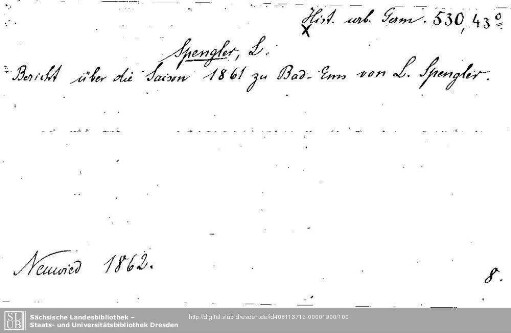 Hist. urb. Germ. 530, 43°
x
Spengler, L.
Bericht über die Saison 1861 zu Bad-Ems von L. Spengler.
Neuwied 1862.
8.
SLUB
Sächsische Landesbibliothek –
Staats- und Universitätsbibliothek Dresden